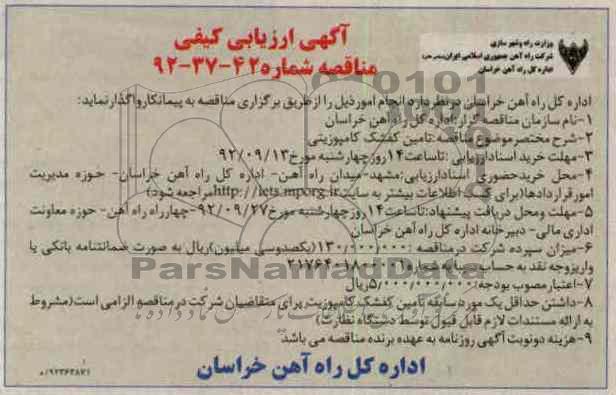 وزارت راه و شهر سازی
شرکت راه آهن جمهوری اسلامی ایران
اداره کل راه آهن خراسان
آگهی ارزیابی کیفی
مناقصه شماره ۴۲-۳۷-۹۲
اداره کل راه آهن خراسان در نظر دارد انجام امور ذیل را از طریق برگزاری مناقصه به پیمانکار واگذار نماید:
۱-نام سازمان مناقصه گزار: اداره کل راه آهن خراسان
۲-شرح مختصر موضوع مناقصه: تامین کفشک کامپوزیتی
۳-مهلت خرید اسناد ارزیابی: تا ساعت ۱۴ روز چهارشنبه مورخ ۹۲/۰۹/۱۳
۴-محل خرید حضوری اسناد ارزیابی: مشهد-میدان راه آهن- اداره کل راه آهن خراسان- حوزه مدیریت
امور قراردادها(برای کسب اطلاعات بیشتر به سایت http://iets.mporg.ir مراجعه شود)
۵-مهلت ومحل دریافت پیشنهاد: تا ساعت ۱۴ روز چهارشنبه مورخ ۹۲/۰۹/۲۷-چهارراه راه آهن- حوزه معاونت
اداری مالی- دبیرخانه اداره کل راه آهن خراسان
۶-میزان سپرده شرکت در مناقصه: ۱۳۰/۰۰۰/۰۰۰(یکصدوسی میلیون)ریال به صورت ضمانتنامه بانکی یا
واریز وجه نقد به حساب سیبا به شماره
۷-اعتبار مصوب بودجه: ۵/۰۰۰/۰۰۰/۰۰۰ریال
۸-داشتن حداقل یک مورد سابقه تامین کفشک کامپوزیت برای متقاضیان شرکت در مناقصه الزامی است(مشروط
به ارائه مستندات لازم قابل قبول توسط دستگاه نظارت)
۹-هزینه دونوبت آگهی روزنامه به عهده برنده مناقصه می باشد
اداره کل راه آهن خراسان
۹۲۳۶۳۸۷۱/م
ParsNamadData